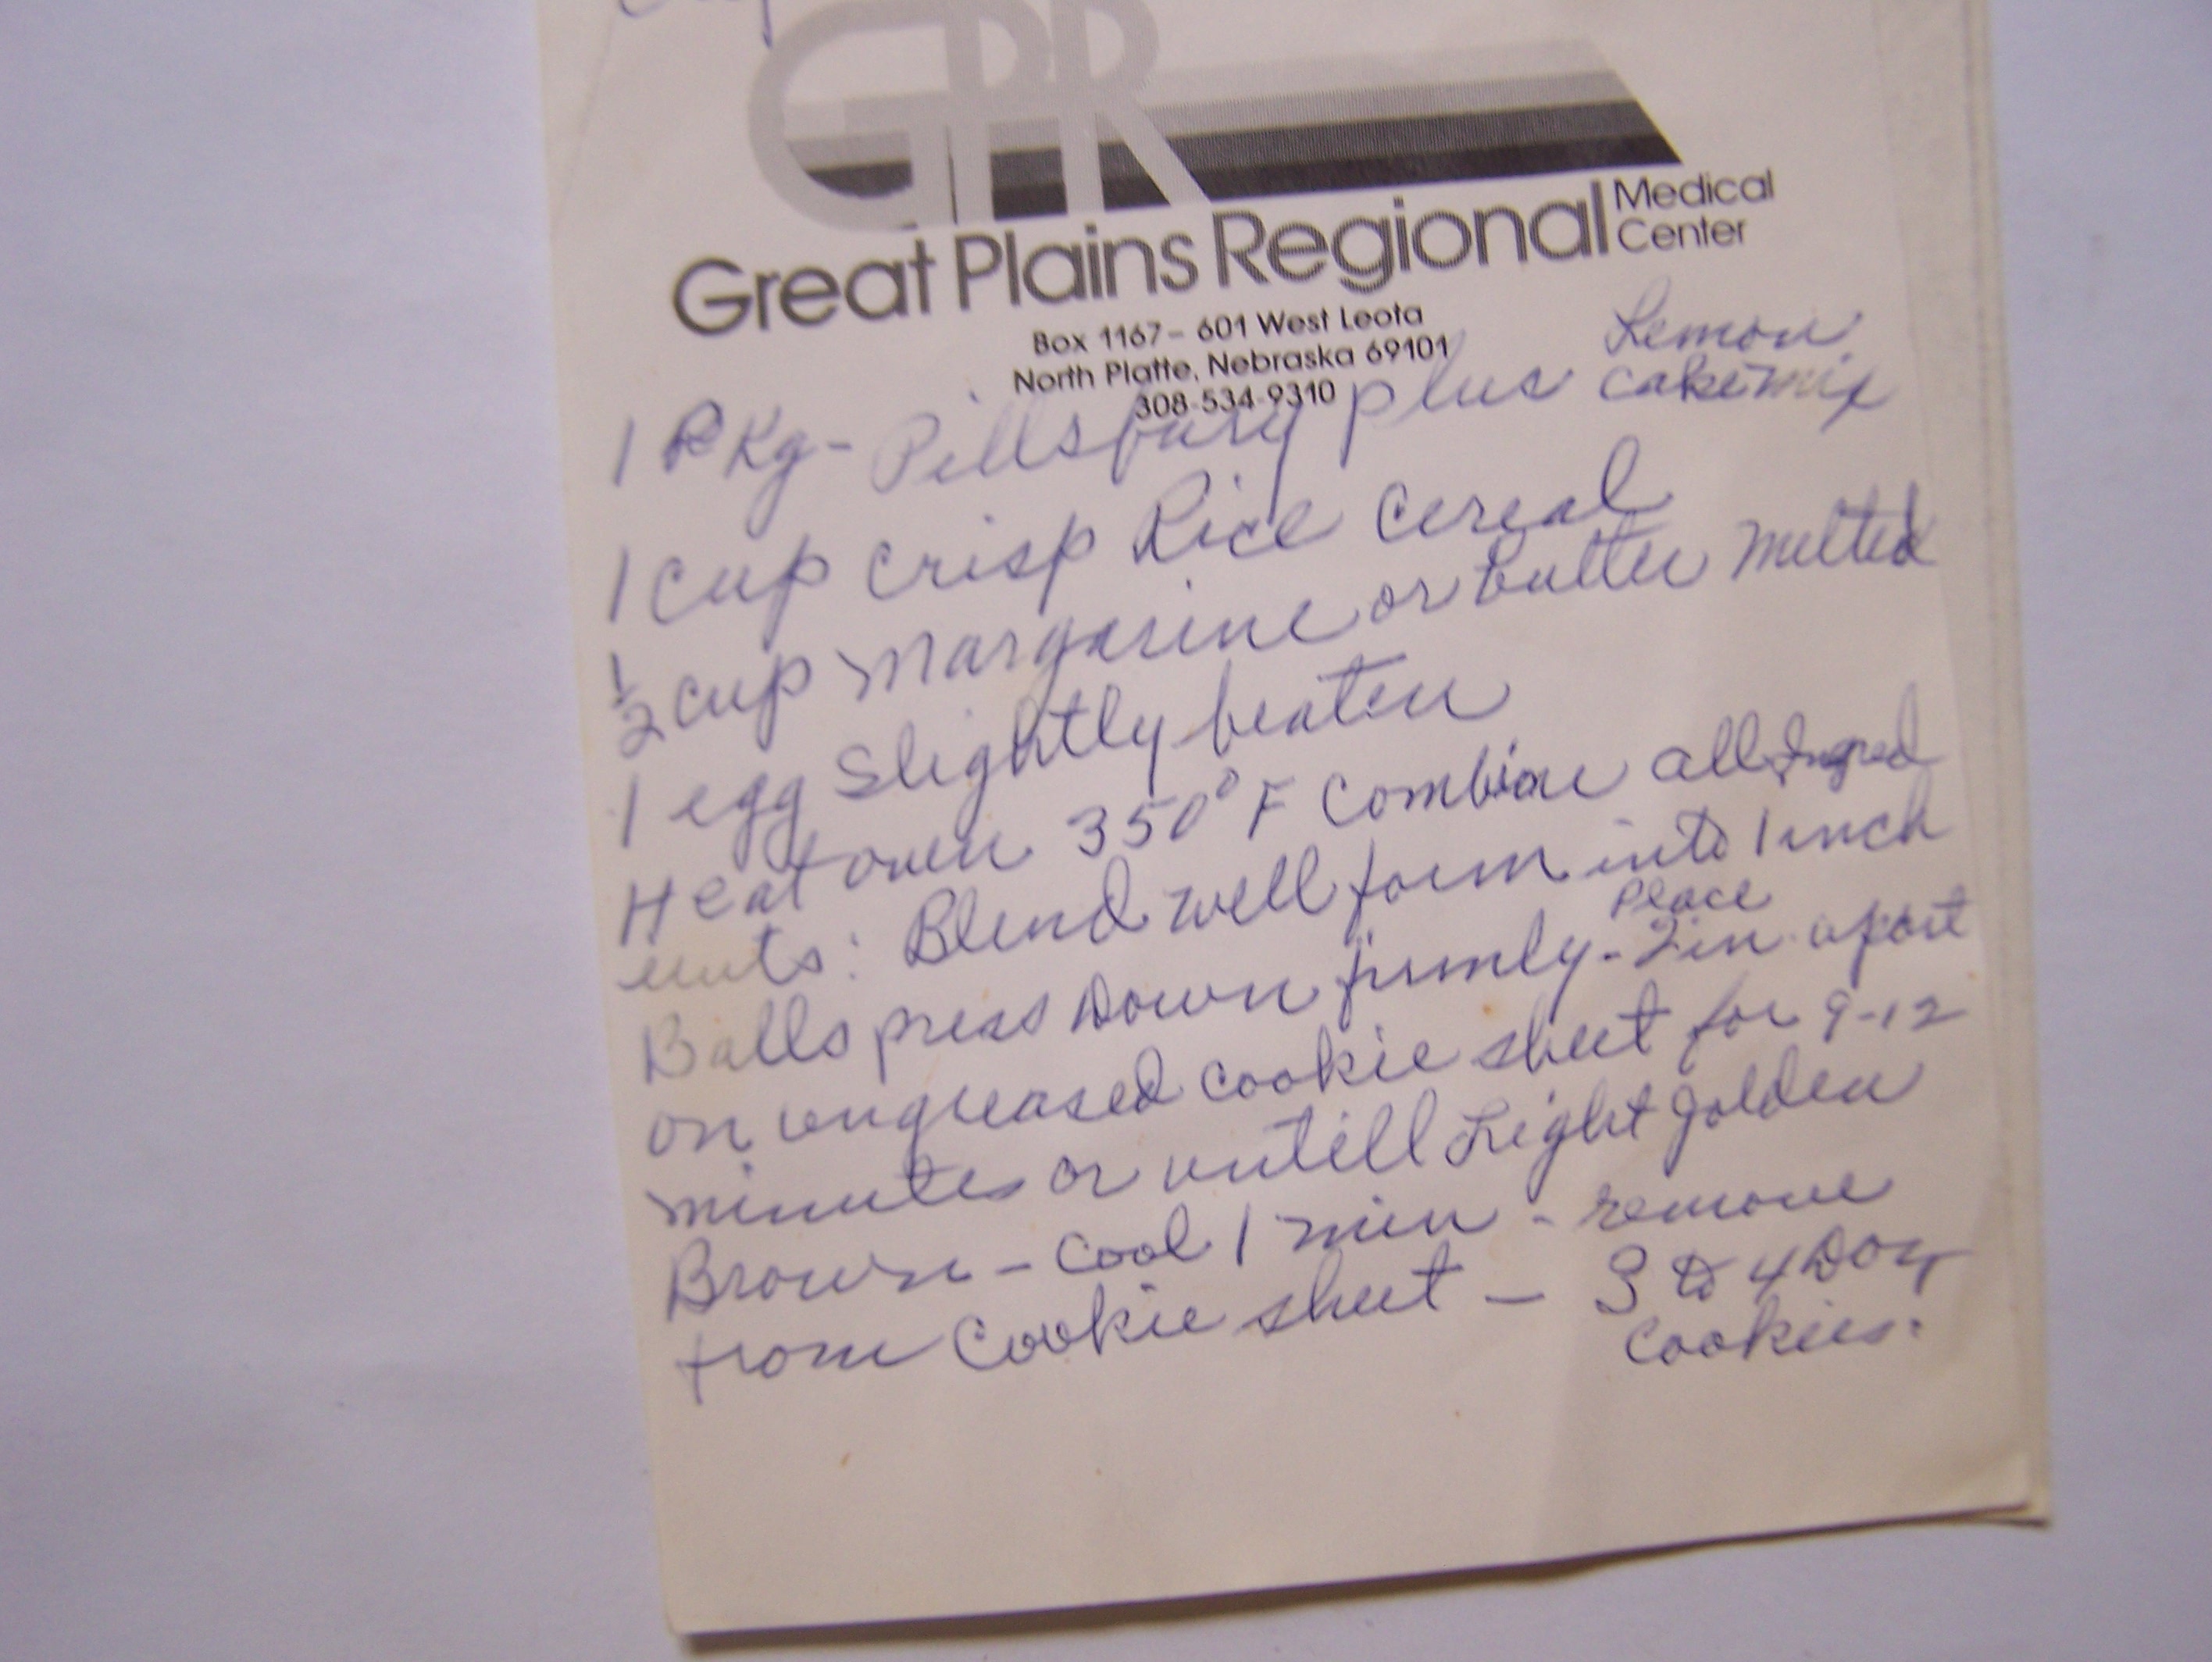 GPR
Great Plains Regional Medical Center
Box 1167 – 601 West Leota
North Platte, Nebraska 69101
308-534-9310
1 Pkg - Pillsbury plus Lemon cake mix
1 cup crisp Rice Cereal
½ cup Margarine or butter melted
1 egg Slightly beaten
Heat oven 350° F Combine all Ingred
ients: Blend well form into 1 inch
Balls press Down firmly - Place 2 in apart
on ungreased cookie sheet for 9-12
minutes or untill Light golden
Brown - Cool 1 min - remove
from Cookie sheet — 3 to 4 Doz
Cookies.